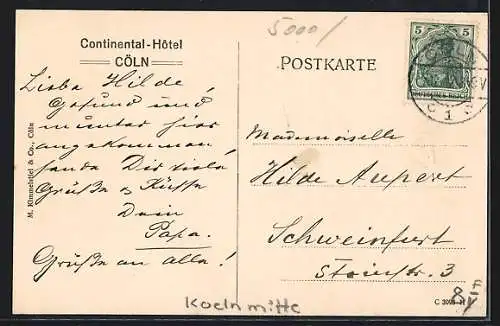 5000/
Continental-Hôtel
CÖLN
POSTKARTE
5 5
DEUTSCHES REICH
CÖLN
1
Liebe Hilde!
Gesund und
munter hier
angekommen
sende Dir viele
Grüße & Küsse
Dein
Papa.
Grüße an alle!
Mademoiselle
Hilde Aupert
Schweinfurt
Steinstr. 3
M. Kimmelstiel & Co., Cöln
Koeln mitte